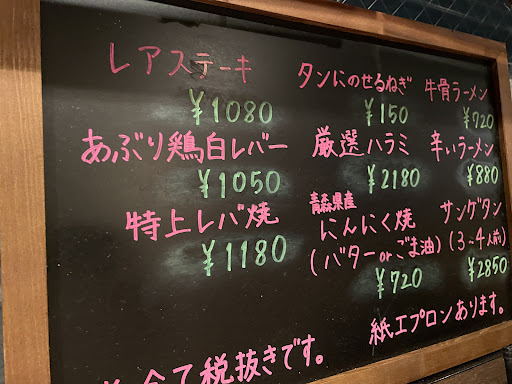 レアステーキ
¥1080
あぶり鶏白レバー
¥1050
特上レバ焼
¥1180
タンにのせるねぎ
¥150
厳選ハラミ
¥2180
青森県産
にんにく焼
(バターorごま油)
¥720
牛骨ラーメン
¥720
辛いラーメン
¥880
サンゲタン
(3~4人前)
¥2850
紙エプロンあります。
全て税抜きです。